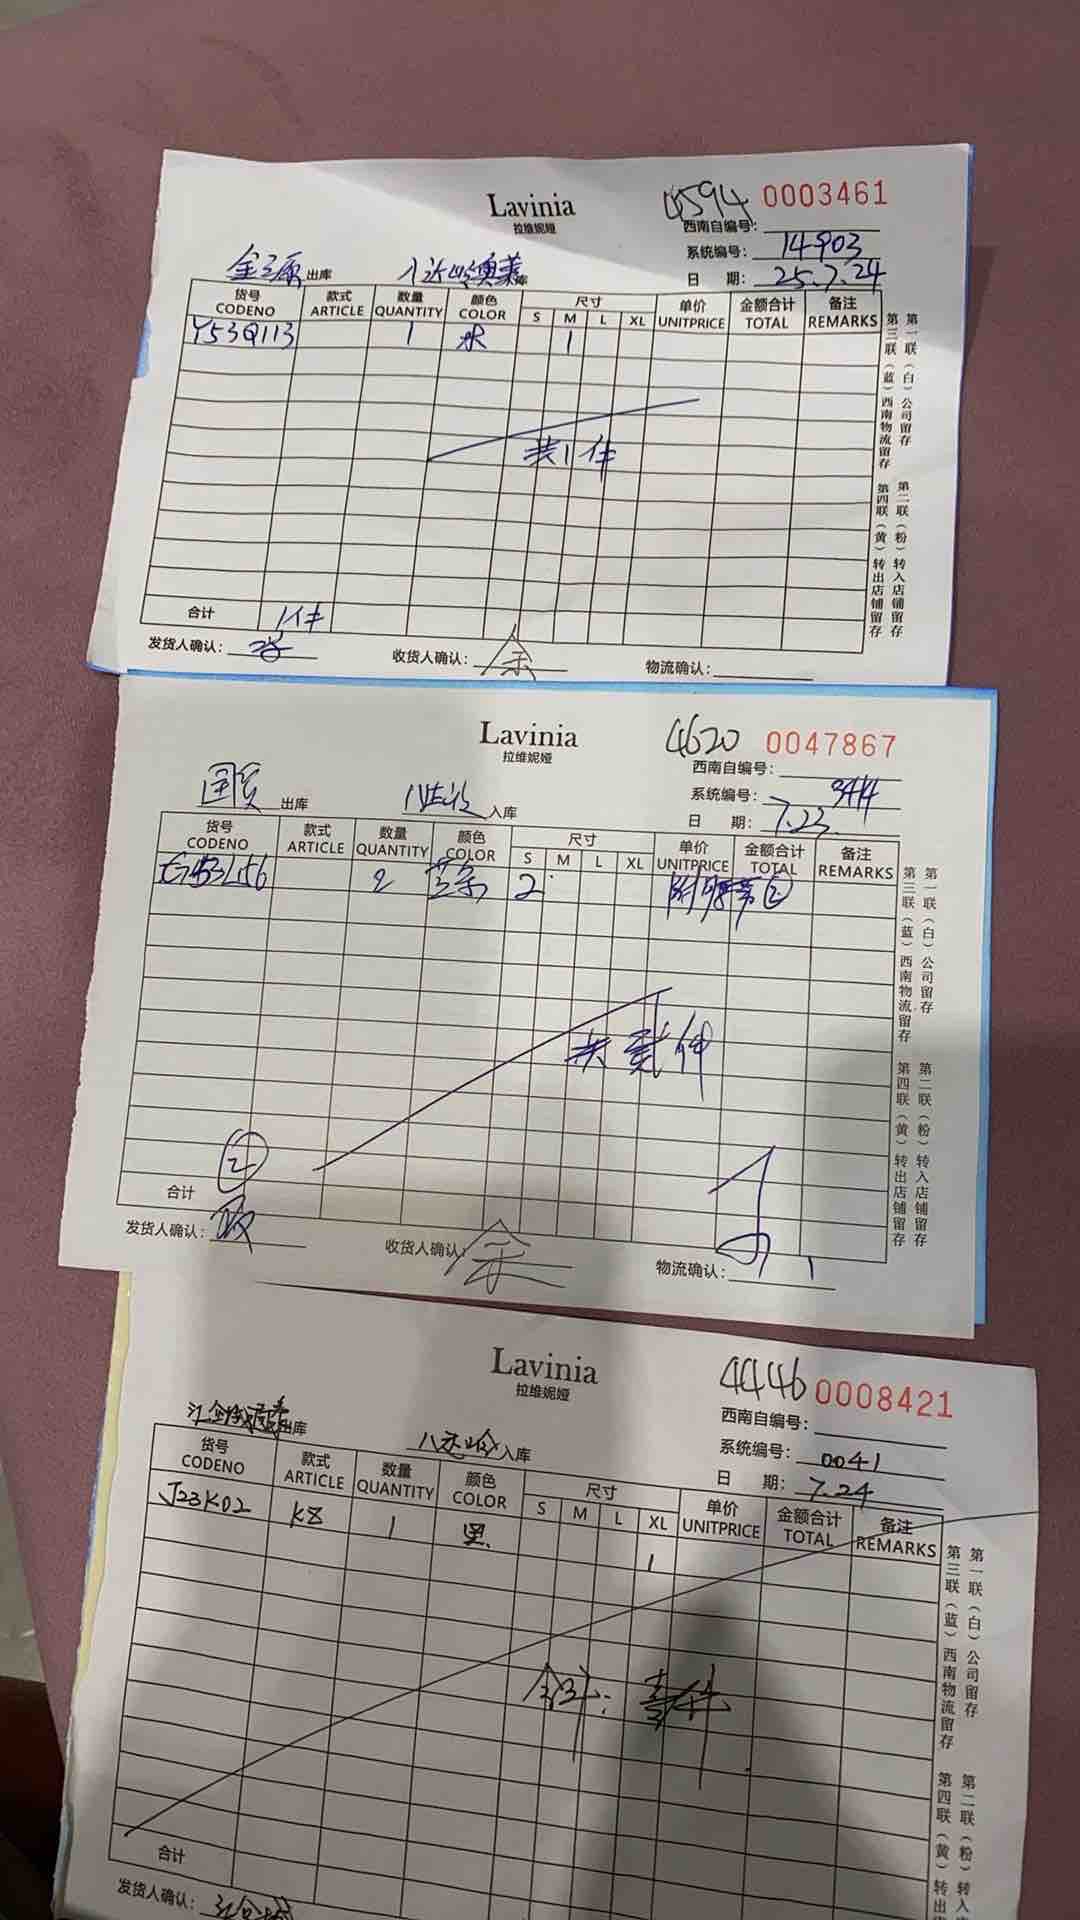 Lavinia
拉维妮娅
4594 0003461
西南自编号:
系统编号: 14903
日 期: 25.7.24
出库
货号 款式 数量 颜色 尺寸 单价 金额合计 备注
CODENO ARTICLE QUANTITY COLOR S M L XL UNITPRICE TOTAL REMARKS
Y53Q113 1 1
共1件
合计 1件
发货人确认:
收货人确认: 余
物流确认:
第一联（白）公司留存
第二联（粉）转入店铺留存
第三联（蓝）西南物流留存
第四联（黄）转出店铺留存
Lavinia
拉维妮娅
4620 0047867
西南自编号:
系统编号: 3414
日 期: 7.23.
国贸 出库 入库
货号 款式 数量 颜色 尺寸 单价 金额合计 备注
CODENO ARTICLE QUANTITY COLOR S M L XL UNITPRICE TOTAL REMARKS
2 2 附腰带②
共贰件
合计 ②
发货人确认:
收货人确认: 余
物流确认:
第一联（白）公司留存
第二联（粉）转入店铺留存
第三联（蓝）西南物流留存
第四联（黄）转出店铺留存
Lavinia
拉维妮娅
4446 0008421
西南自编号:
系统编号: 0041
日 期: 7.24
出库 入库
货号 款式 数量 颜色 尺寸 单价 金额合计 备注
CODENO ARTICLE QUANTITY COLOR S M L XL UNITPRICE TOTAL REMARKS
J23K02 K8 1 黑 1
合计: 壹件
合计
发货人确认:
第一联（白）公司留存
第二联（粉）转入
第三联（蓝）西南物流留存
第四联（黄）转出